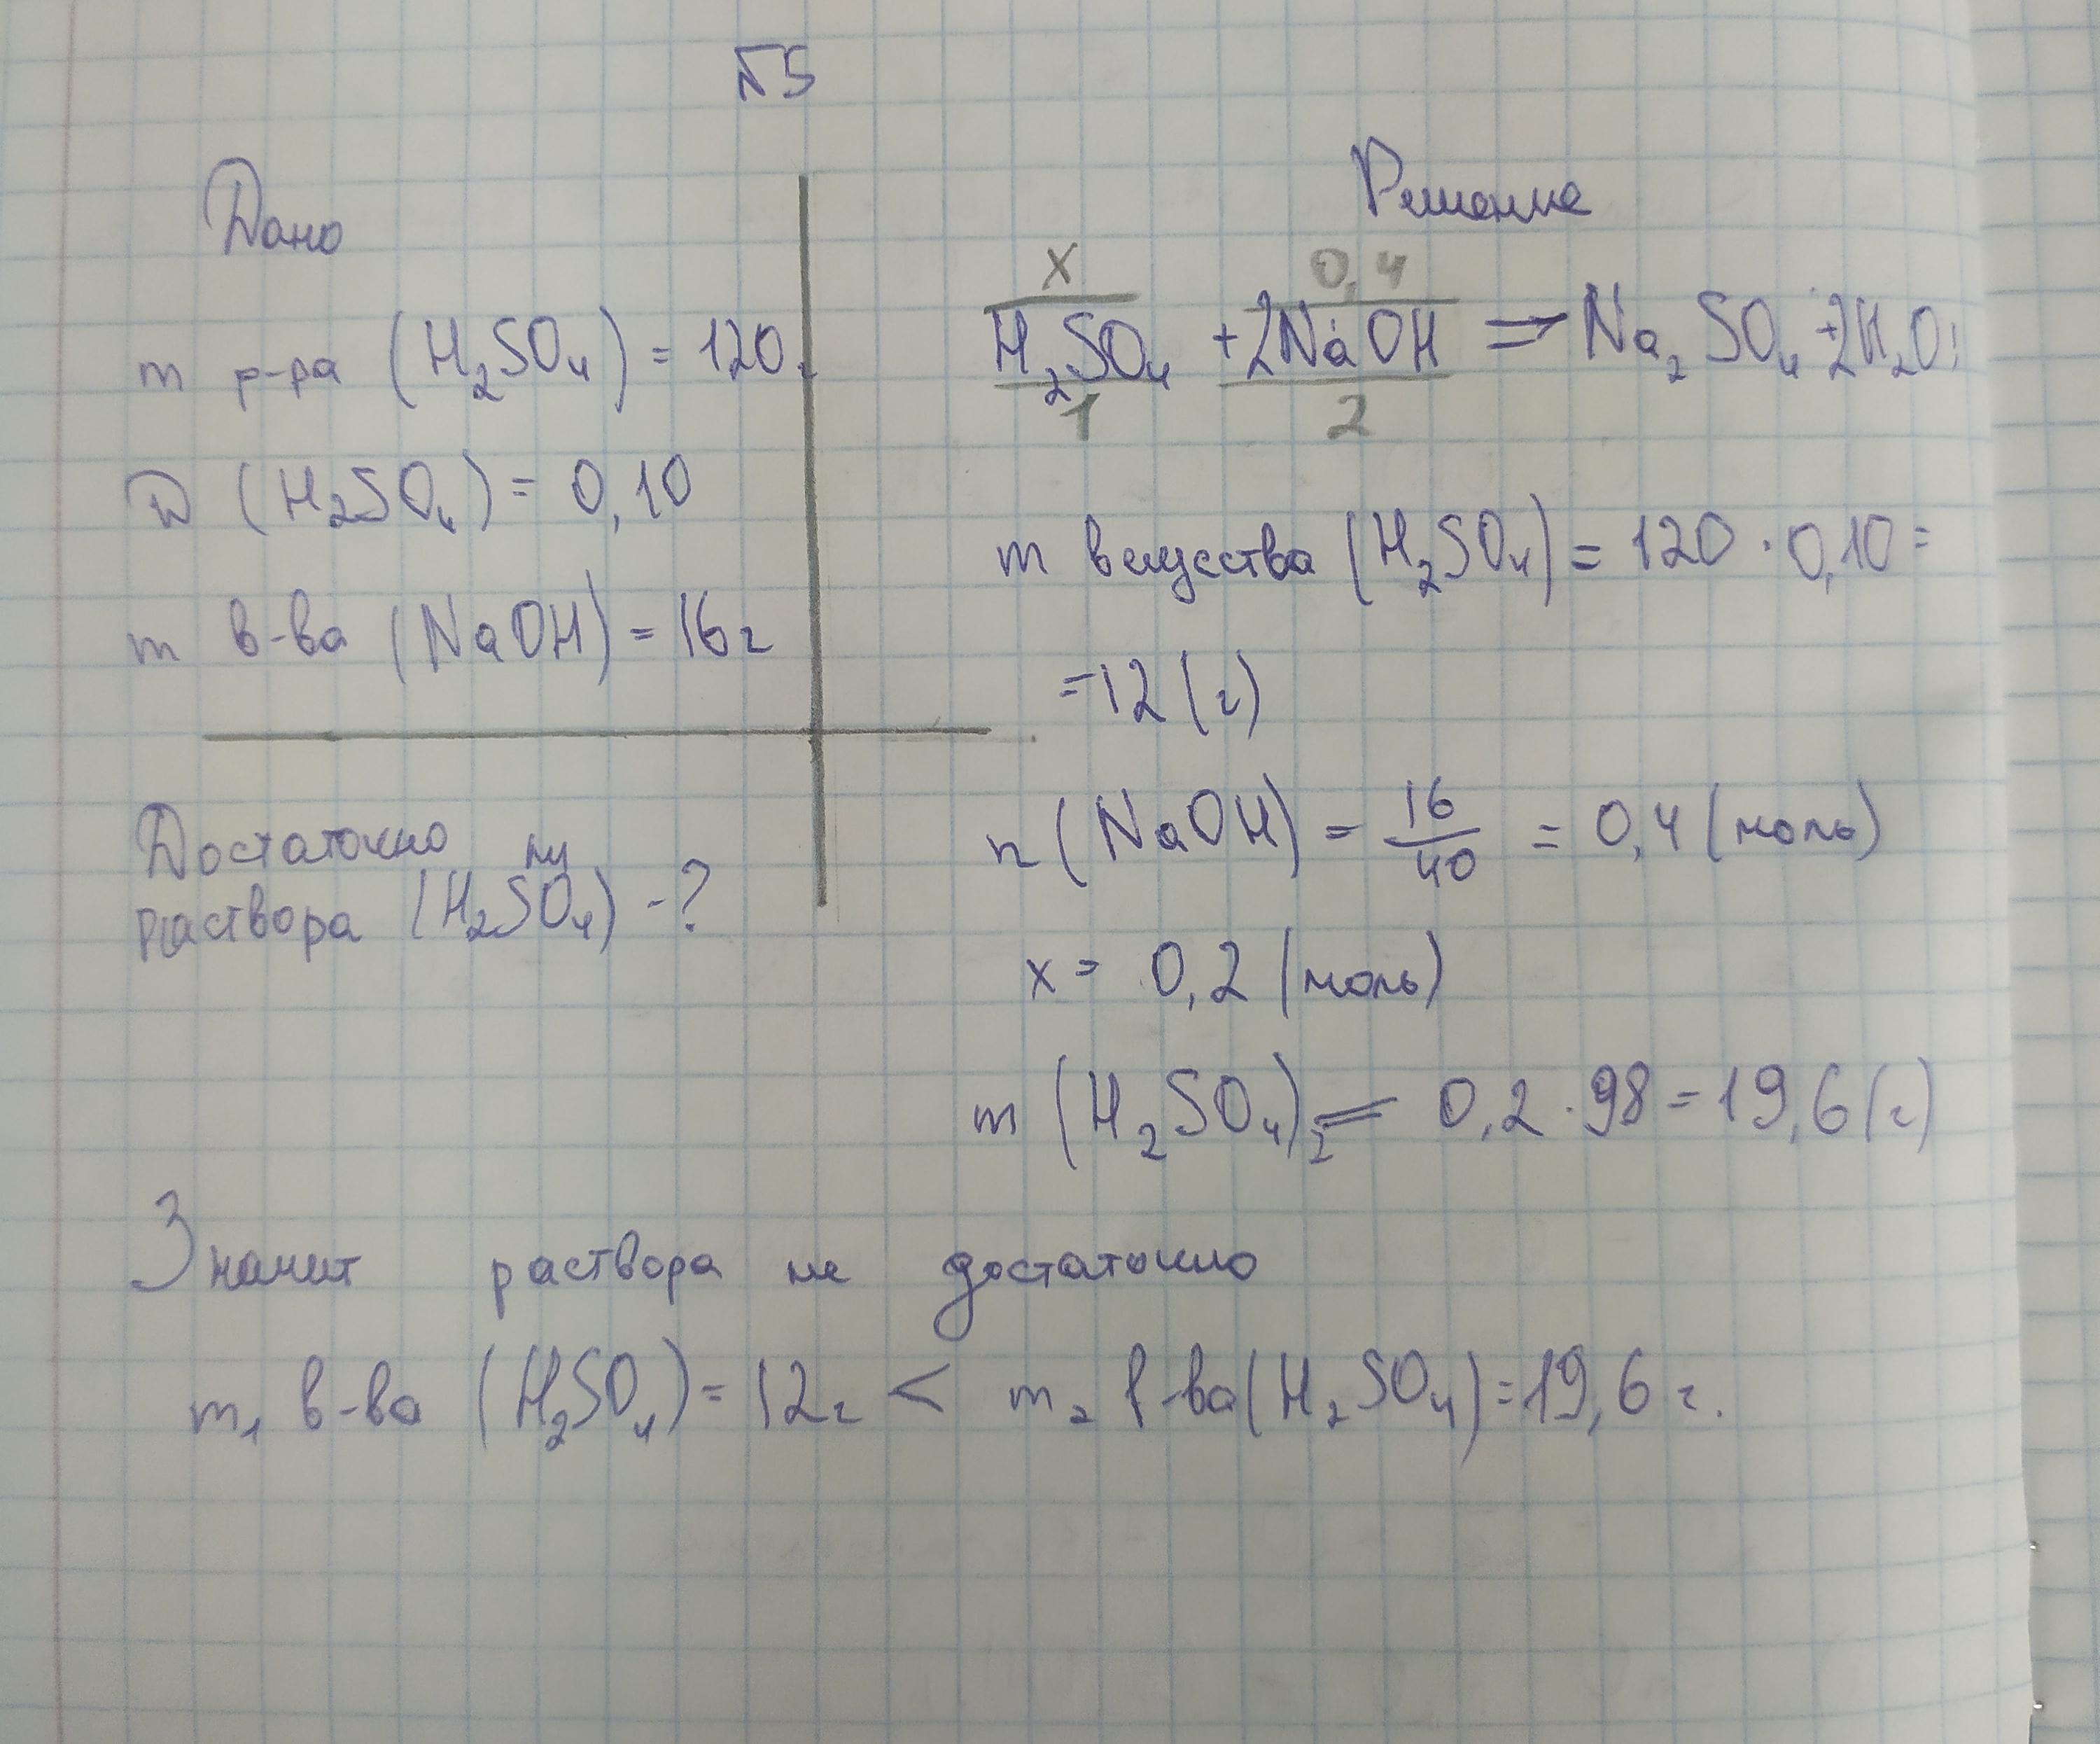 №5
Дано
m р-ра (H₂SO₄) = 120г
W (H₂SO₄) = 0,10
m в-ва (NaOH) = 16г
Достаточно ли
раствора (H₂SO₄) - ?
Решение
x 0,4
H₂SO₄ + 2NaOH => Na₂SO₄ + 2H₂O
1 2
m вещества (H₂SO₄) = 120 · 0,10 =
= 12 (г)
n (NaOH) = 16/40 = 0,4 (моль)
x = 0,2 (моль)
m (H₂SO₄)₂ = 0,2 · 98 = 19,6 (г)
Значит раствора не достаточно
m₁ в-ва (H₂SO₄) = 12г < m₂ в-ва (H₂SO₄) = 19,6 г.